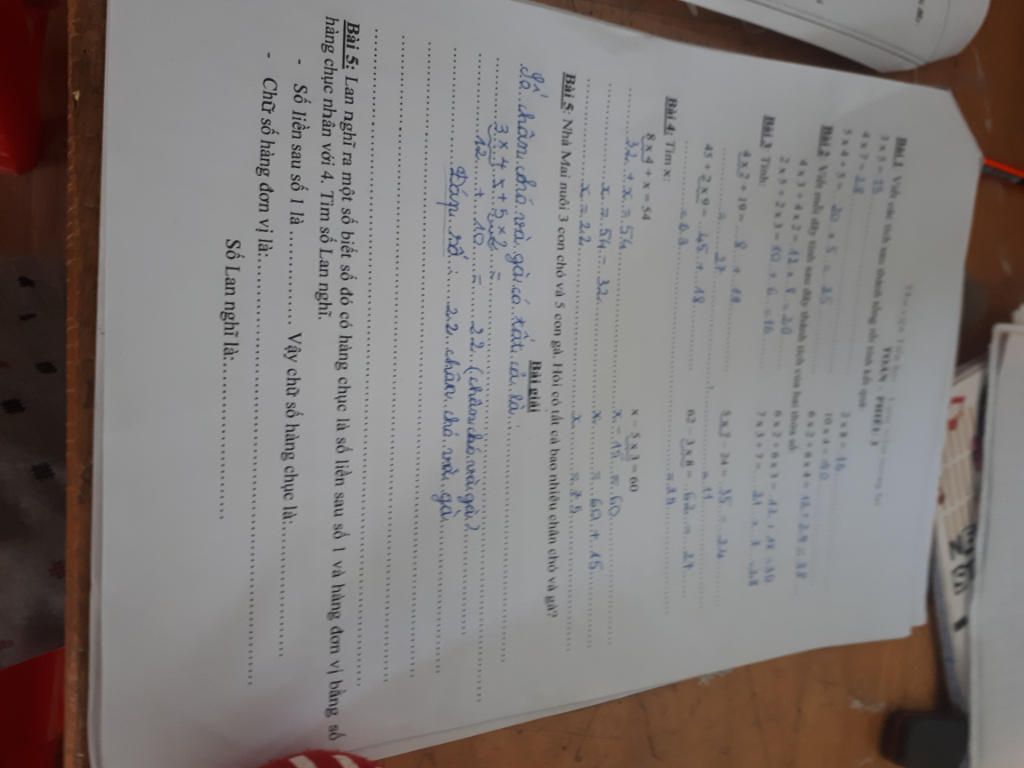 TOÁN - PHIẾU 3
Bài 1: Viết các tích sau thành tổng rồi tính kết quả:
2 x 8 = 16
4 x 7 = 28
5 x 4 + 5 = 20 + 5 = 25
Bài 2: Viết mỗi dãy tính sau đây thành tích của hai thừa số
4 x 3 + 4 x 2 = 12 + 8 = 20
2 x 5 + 2 x 3 = 10 + 6 = 16
Bài 3: Tính:
4 x 2 + 19 = 8 + 19
= 27
45 + 2 x 9 = 45 + 18
= 63
5 x 7 - 24 = 35 - 24
= 11
62 - 3 x 8 = 62 - 24
Bài 4: Tìm x:
8 x 4 + x = 54
32 + x = 54
x = 54 - 32
x = 22
x - 5 x 3 = 60
x - 15 = 60
x = 60 + 15
x = 75
Bài 5: Nhà Mai nuôi 3 con chó và 5 con gà. Hỏi có tất cả bao nhiêu chân chó và gà?
Bài giải
Số chân chó và gà có tất cả là:
3 x 4 + 5 x 2 =
12 + 10 = 22 (chân chó và gà)
Đáp số: 22 chân chó và gà
Bài 5: Lan nghĩ ra một số biết số đó có hàng chục là số liền sau số 1 và hàng đơn vị bằng số
hàng chục nhân với 4. Tìm số Lan nghĩ.
- Số liền sau số 1 là ............. Vậy chữ số hàng chục là:.............
- Chữ số hàng đơn vị là:.............
Số Lan nghĩ là:.............